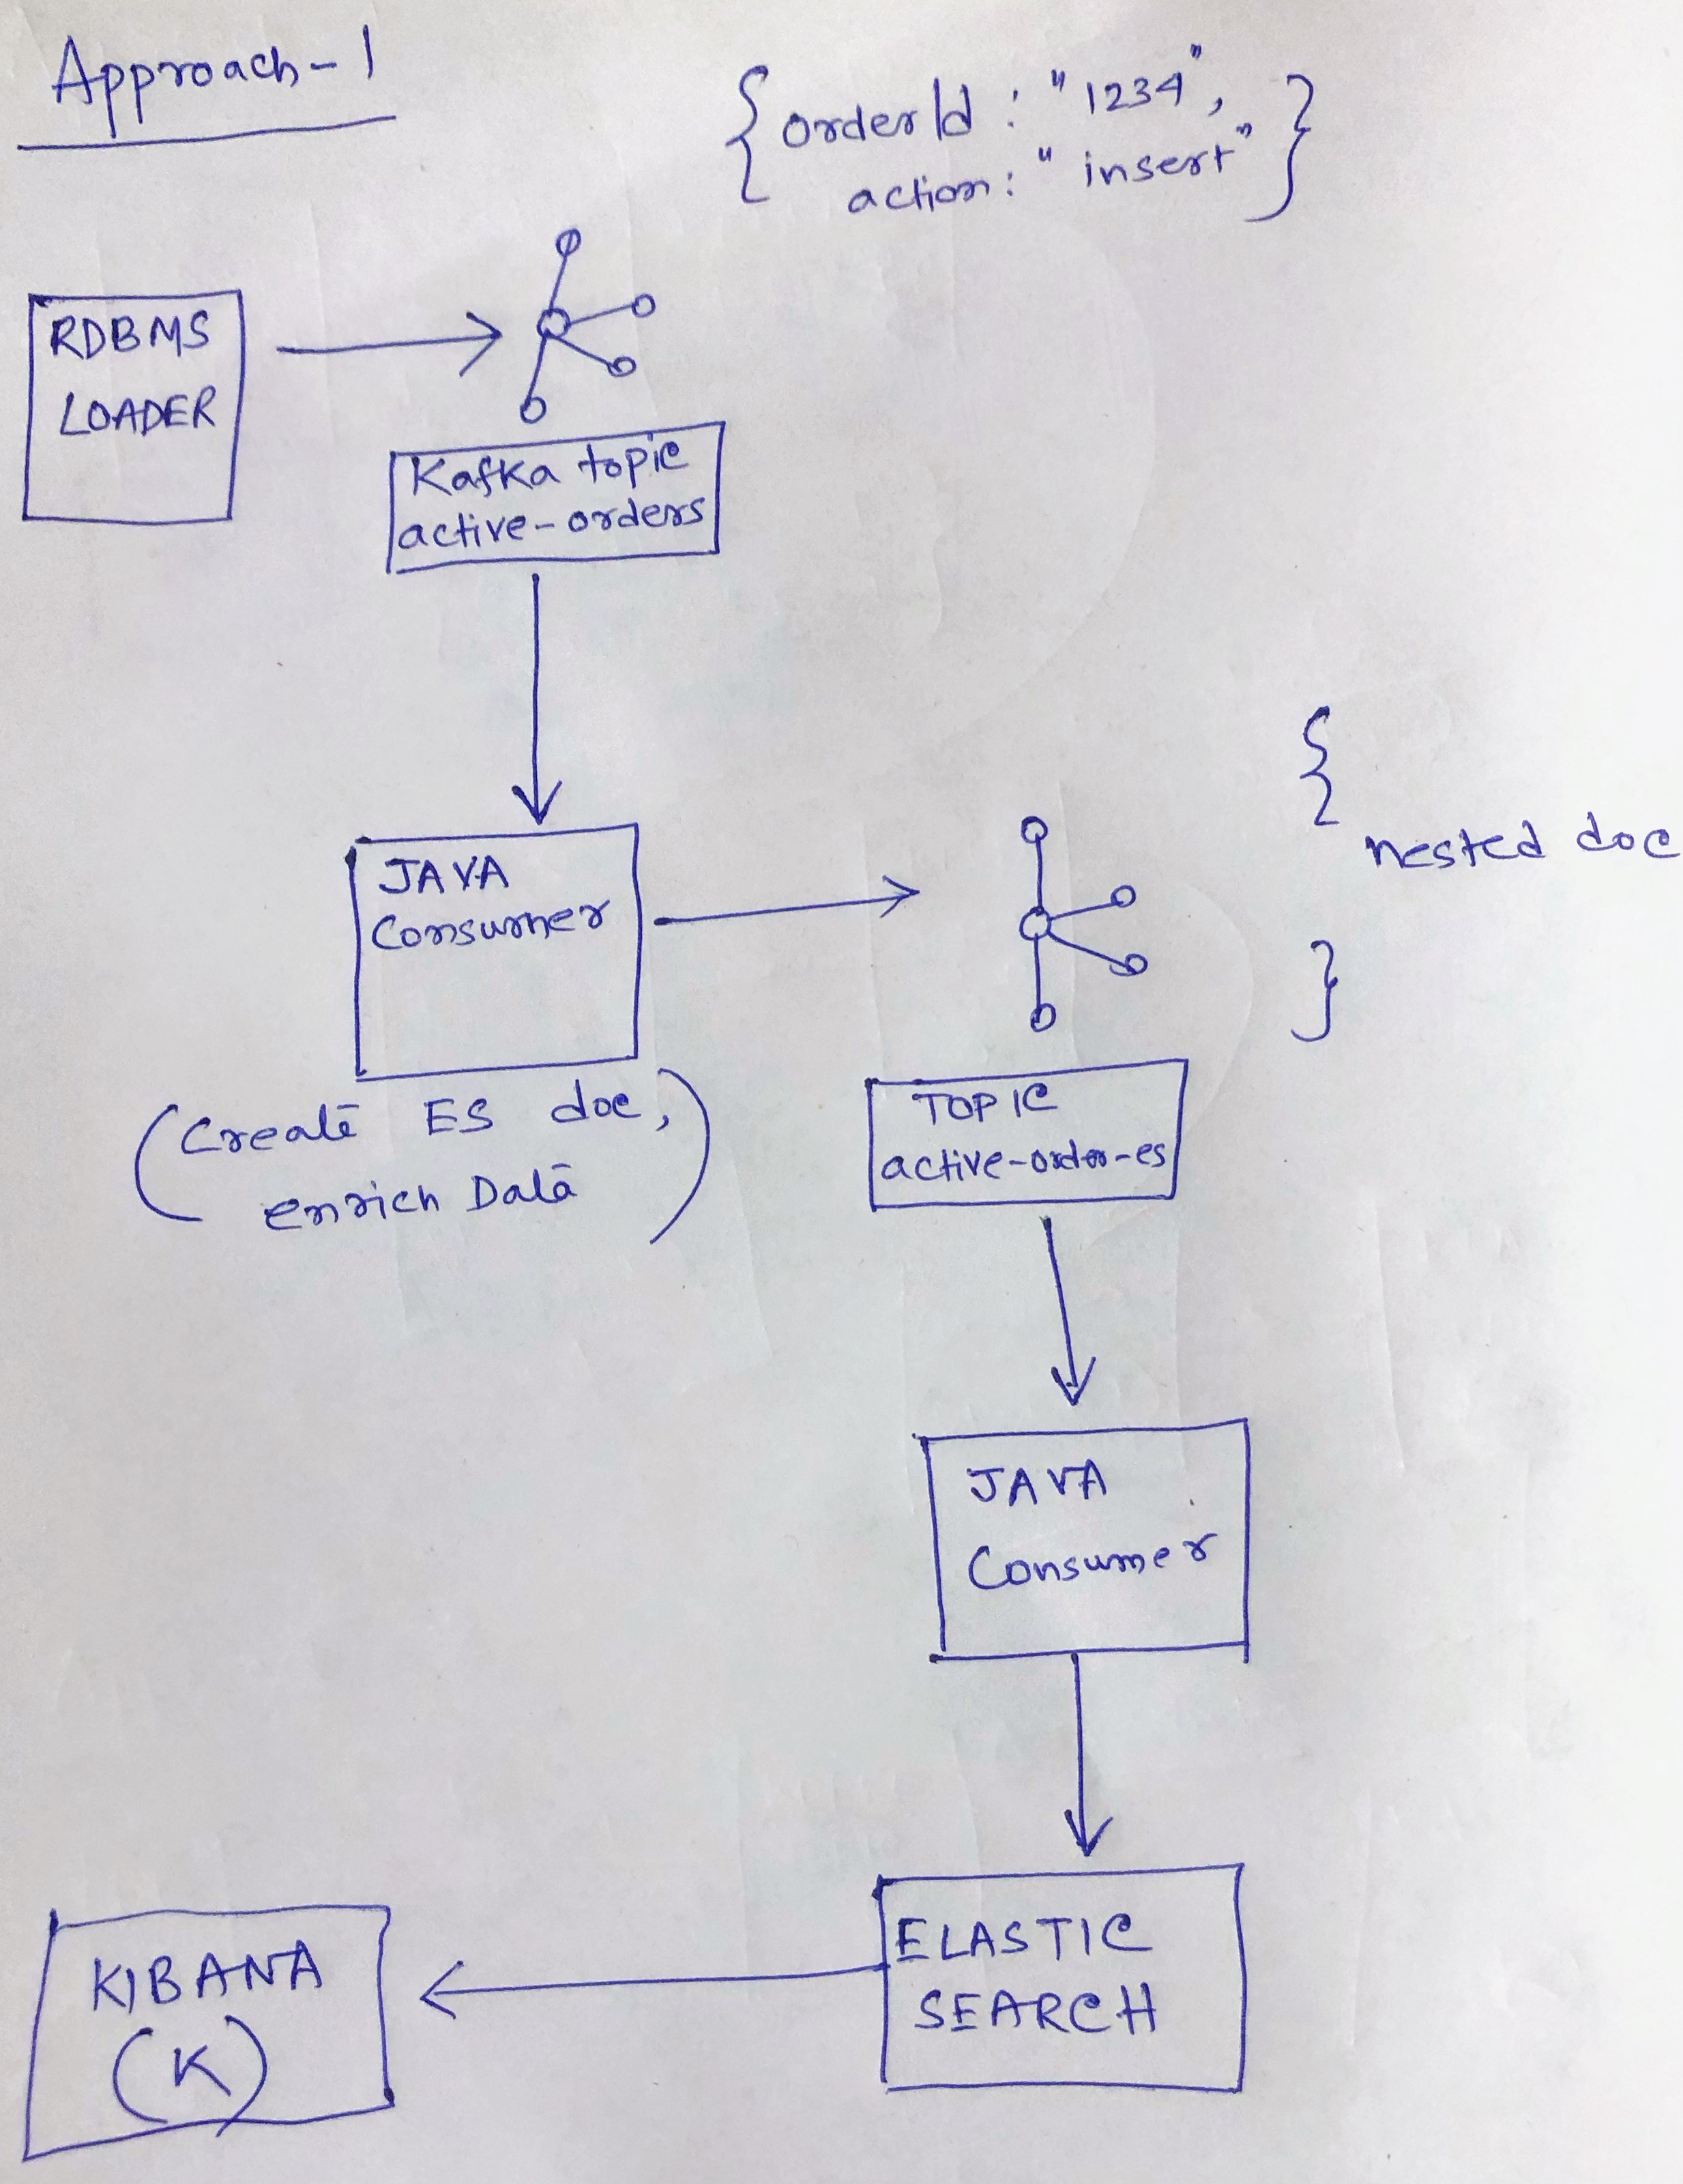 Approach-1
{ orderId : "1234",
action: "insert" }
RDBMS
LOADER
Kafka topic
active-orders
{
nested doc
}
JAVA
Consumer
(Create ES doc,
enrich Data)
TOPIC
active-order-es
JAVA
Consumer
ELASTIC
SEARCH
KIBANA
(K)